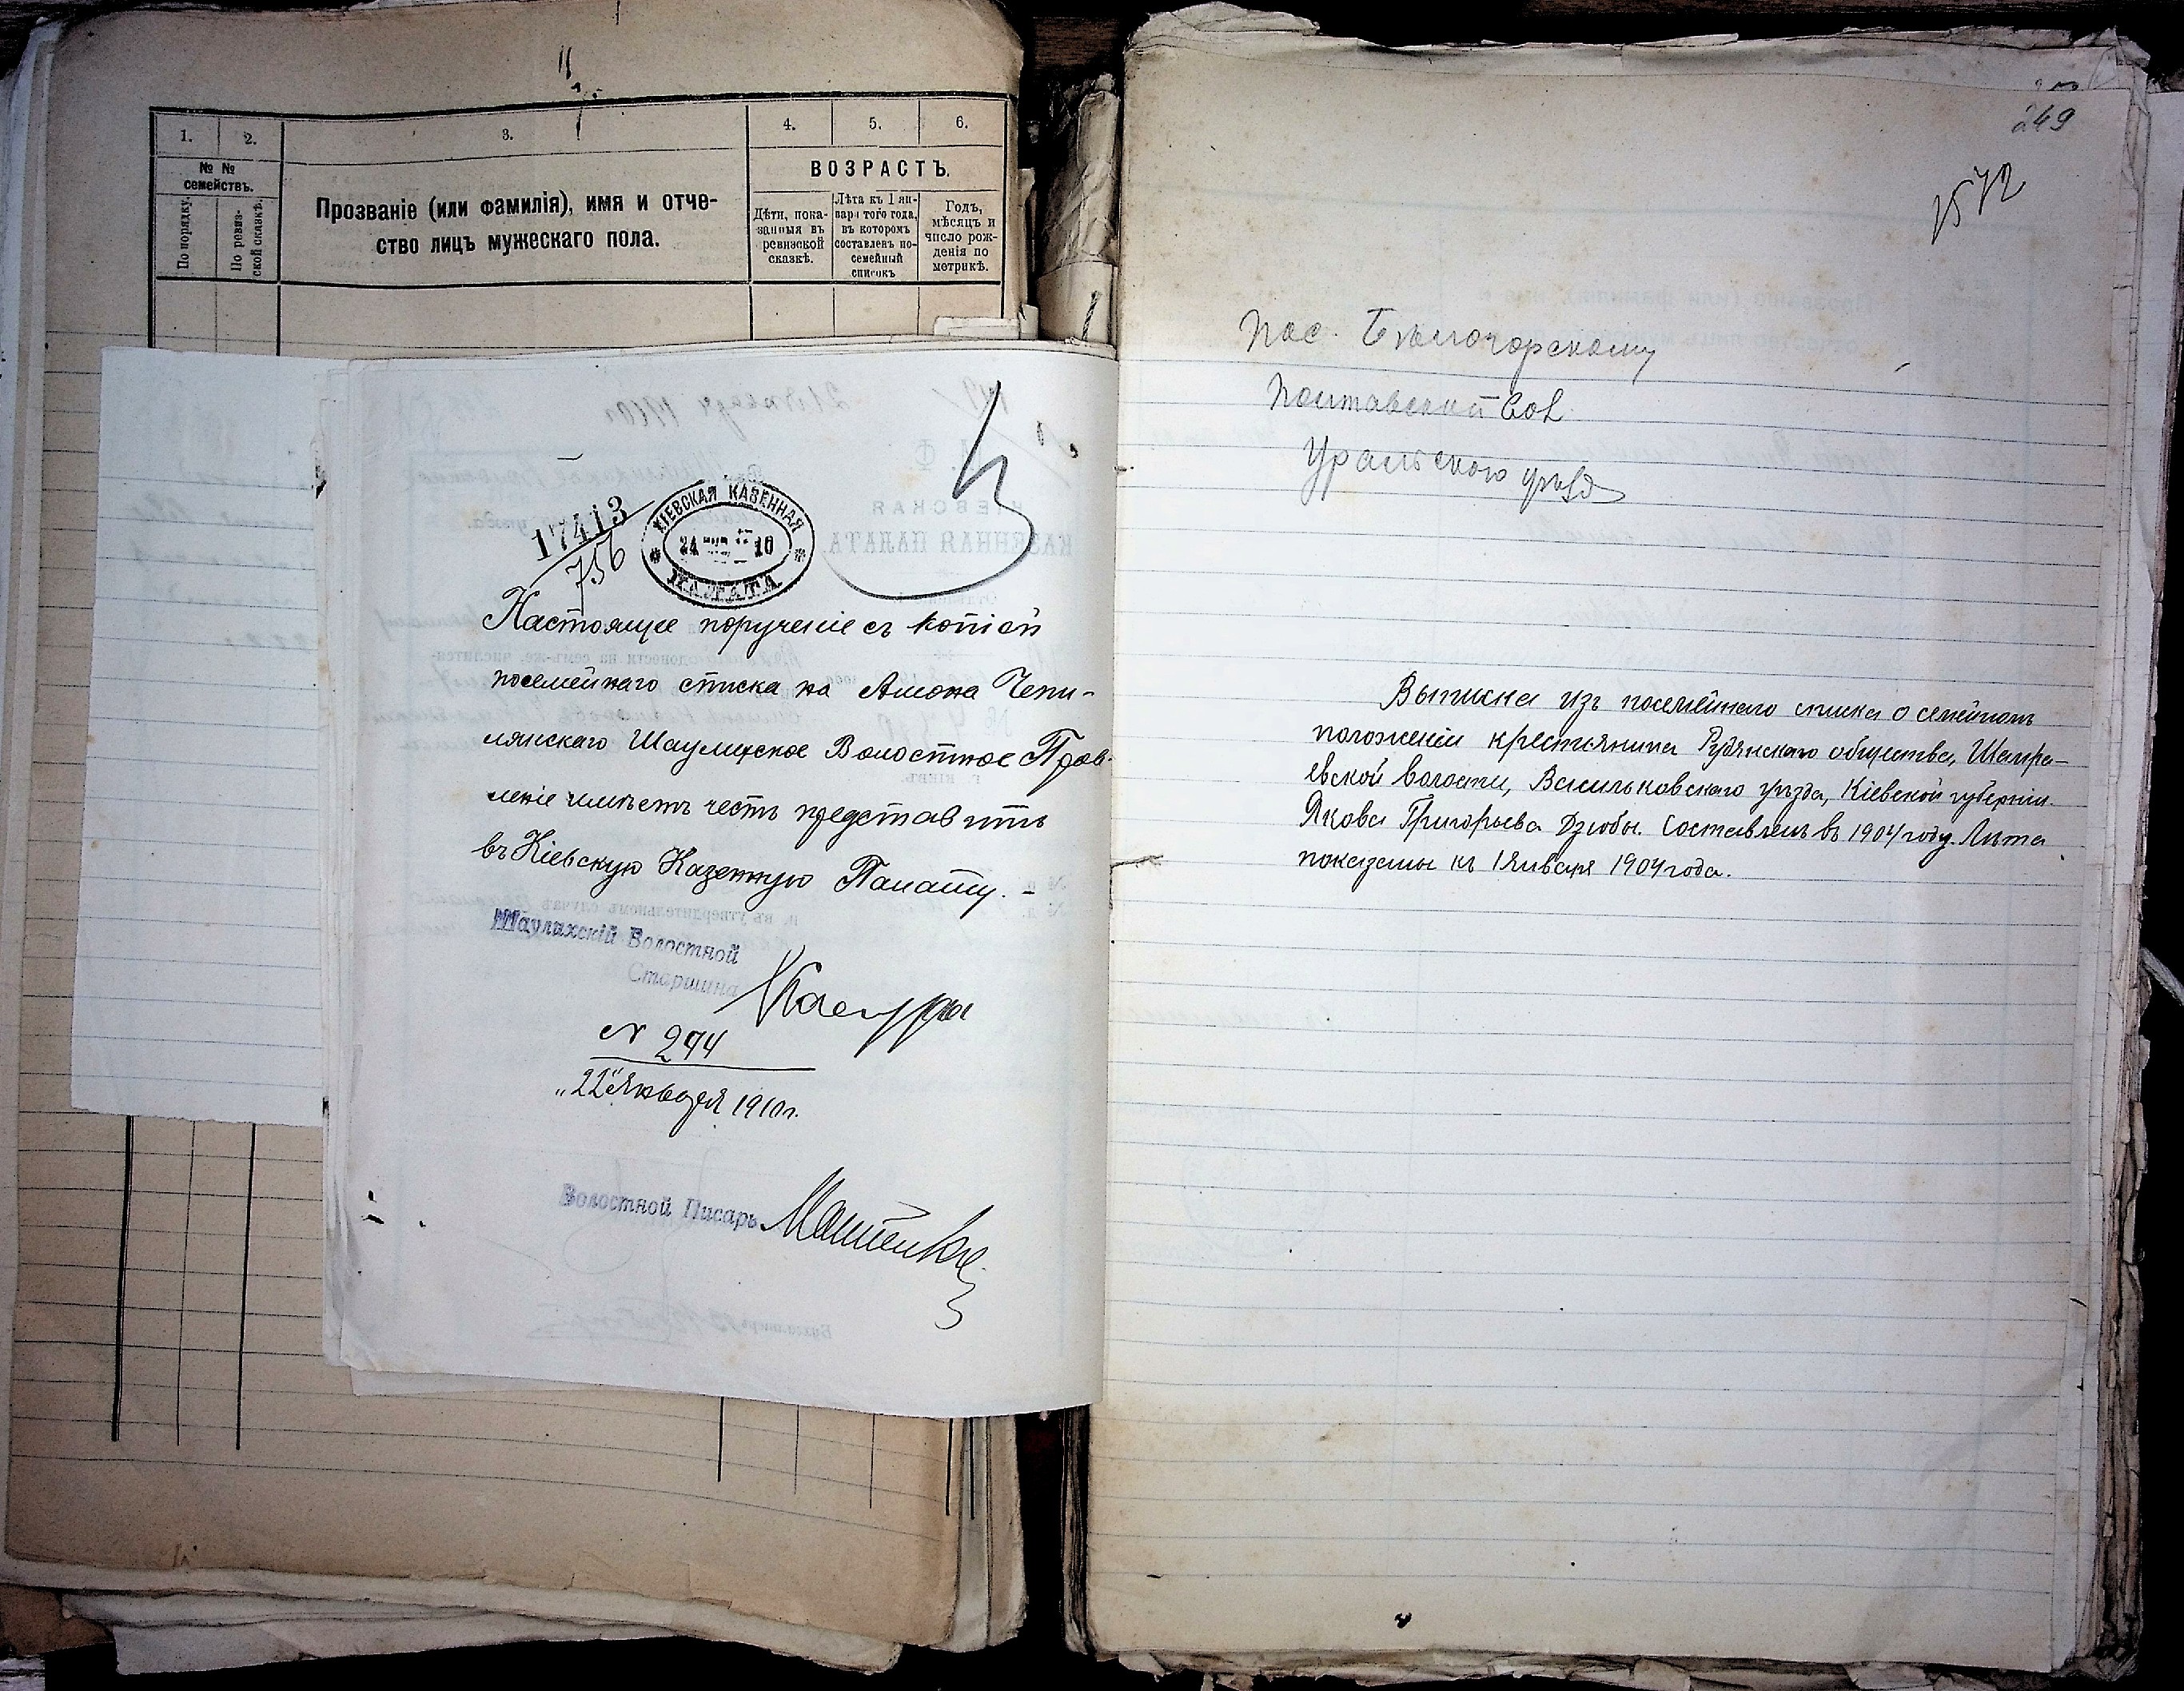 1.
2.
3.
4.
5.
6.
№ №
семействъ.
По порядку.
По ревиз-
ской сказкѣ.
Прозваніе (или фамилія), имя и отче-
ство лицъ мужескаго пола.
ВОЗРАСТЪ.
Дѣти, пока-
занныя въ
ревизской
сказкѣ.
Лѣта къ 1 ян-
варя того года,
въ которомъ
составленъ по-
семейный
списокъ
Годъ,
мѣсяцъ и
число рож-
денія по
метрикѣ.
17413
756
КІЕВСКАЯ КАЗЕННАЯ
24 10
ПАЛАТА
Настоящее порученіе съ копіей
посемейнаго списка на Амона Чепи-
лянскаго Шаулихское Волостное Прав-
леніе имѣетъ честь представить
въ Кіевскую Казенную Палату. –
Шаулихскій Волостной
Старшина
№ 294
"22" Января 1910 г.
Волостной Писарь
249
1572
Пос. Бѣлогорскому
Полтавской вол
Уральского уѣзд
Выписка изъ посемейнаго списка о семейномъ
положеніи крестьянина Рудянскаго общества, Шамра-
евской волости, Васильковскаго уѣзда, Кіевской губерніи
Якова Григорьева Дзюбы. Составленъ въ 1904 году. Лѣта
показаны къ 1 Января 1904 года.